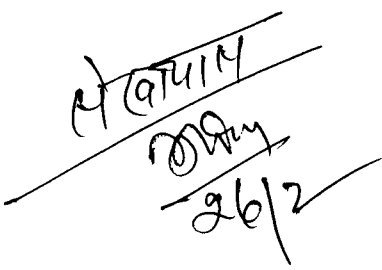 लेखापाल
26/2